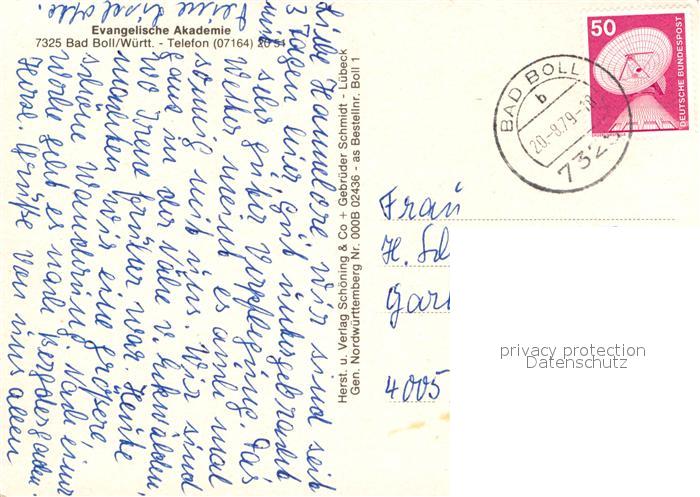 Evangelische Akademie
7325 Bad Boll/Württ. - Telefon (07164) 20 51
Liebe Hannelore, wir sind seit
3 Tagen hier gut untergebracht
mit sehr guter Verpflegung. Das
Wetter meint es auch mal
sonnig mit uns. Wir sind
ganz in der Nähe v. Eckwälden,
wo Irene früher war. Heute
machten wir eine größere
schöne Wanderung. Nach einer
Woche geht es nach Berchtesgaden.
Herzl. Grüße von uns allen
Deine Liselotte.
Herst. u. Verlag Schöning & Co + Gebrüder Schmidt - Lübeck
Gen. Nordwürttemberg Nr. 000B 02436 - as Bestellnr. Boll 1
50
DEUTSCHE BUNDESPOST
BAD BOLL
b
20.-8.79-18
732
Frau
H. Sch
Gart
4005
privacy protection
Datenschutz